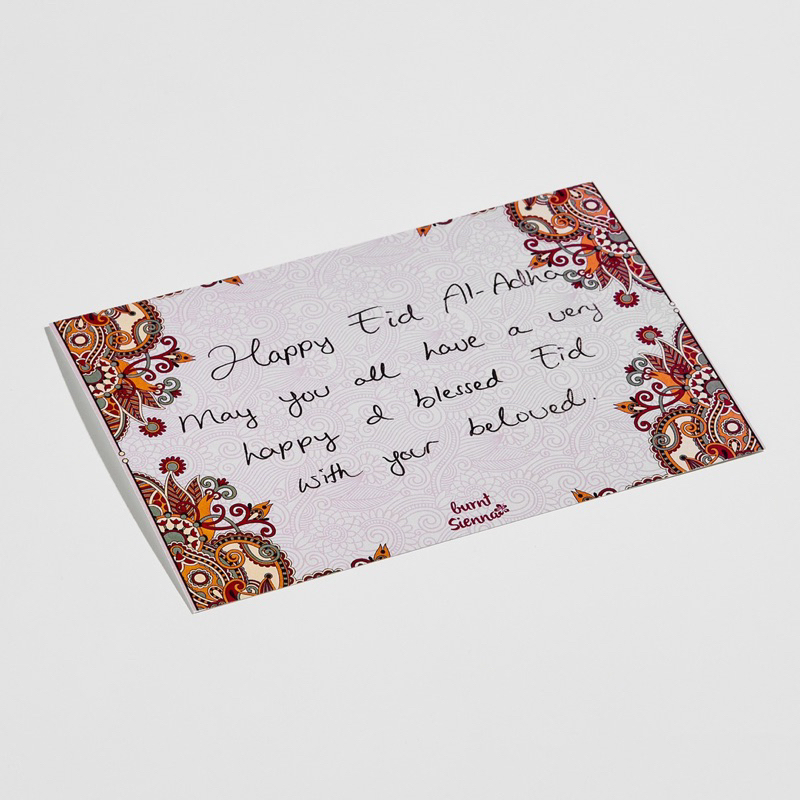 Happy Eid Al-Adha
May you all have a very
happy & blessed Eid
with your beloved.
burnt
Sienna